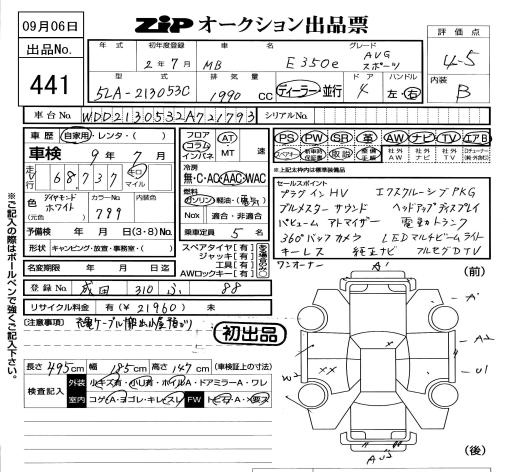 09月06日
ZIP オークション出品票
出品No.
441
評価点
4-5
内装
B
年式 初年度登録 車名 グレード
2年7月 MB E350e AVG スポーツ
型式 排気量 ドア ハンドル
5LA-213053C 1990 CC ディーラー・並行 4 左・右
車台No. WDD2130532A721793 シリアルNo.
車歴 自家用・レンタ・( )
車検 9年7月
走行 68,737 キロ マイル
色 ダイヤモンドホワイト カラーNo. 799
(元色)
予備検 年 月 日 (3・8) No.
形状 キャンピング・放宣・事務室・( )
名変期限 年 月 日迄
登録No. 成田 310 ふ 88
リサイクル料金 有 (¥21960) 未
フロア コラム インパネ
AT MT 速
冷房
無・C・AC・AAC・WAC
燃料
ガソリン・軽油・(電気)
Nox 適合・非適合
乗車定員 5 名
スペアタイヤ【有】
ジャッキ【有】
工具【有】
AWロックキー【有】
PS PW SR 革 AW ナビ TV エアB
スペアキー 新車時保証書 取説 整備手帳 社外AW 社外ナビ 社外TV
セールスポイント
プラグインHV エクスクルーシブPKG
ブルメスターサウンド ヘッドアップディスプレイ
パヒュームアトマイザー 電動トランク
360°バックカメラ LEDマルチビームライト
キーレス 純正ナビ フルセグDTV
ワンオーナー
(注意事項)
初出品
長さ 495cm 幅 185cm 高さ 147cm (車検証上の寸法)
検査記入
外装 小キズ有・小U有・ホイルA・ドアミラーA・ワレ
室内 コゲA・ヨゴレ・キレスレ FW トビ石A・X要ス
※ご記入の際はボールペンで強くご記入下さい。
(前)
A'
A'
A2
U1
W2
XX
(後)